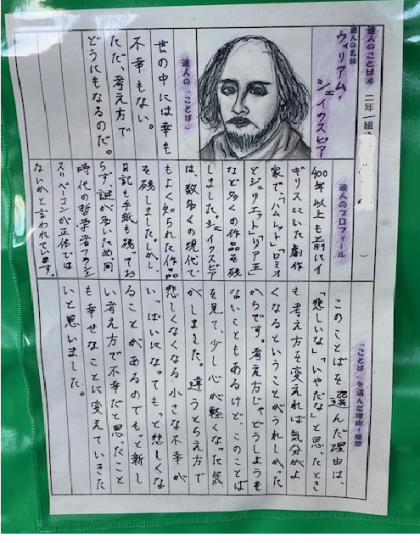 達人のことば④
二年一組
達人の名前
ウィリアム・
シェイクスピア
達人の「ことば」
世の中には幸も
不幸もない。
ただ、考え方で
どうにもなるのだ。
達人のプロフィール
400年以上も前にイ
ギリスにいた劇作
家で、「ハムレット」「ロミオ
とジュリエット」「リア王」
など多くの作品を残
しました。シェイクスピア
は、数多くの現代で
もよく知られた作品
を残しました。しかし
日記も手紙も残てお
らず、謎が多いため、同
時代の哲学者フランシ
ス・ベーコンが正体では
ないかと言われています。
「ことば」を選んだ理由・感想
このことばを選んだ理由は、
「悲しいな」「いやだな」と思ったとき
も考え方を変えれば気分がよ
くなるということがうれしかった
からです。考え方じゃどうしようも
ないこともあるけど、このことば
を見て、少し心が軽くなった気
がしました。違うとらえ方で
悲しくなる小さな不幸が
いっぱいになってもっと悲しくな
ることがあるのでもっと新し
い考え方で不幸だと思ったこと
も幸せなことに変えていきた
いと思いました。